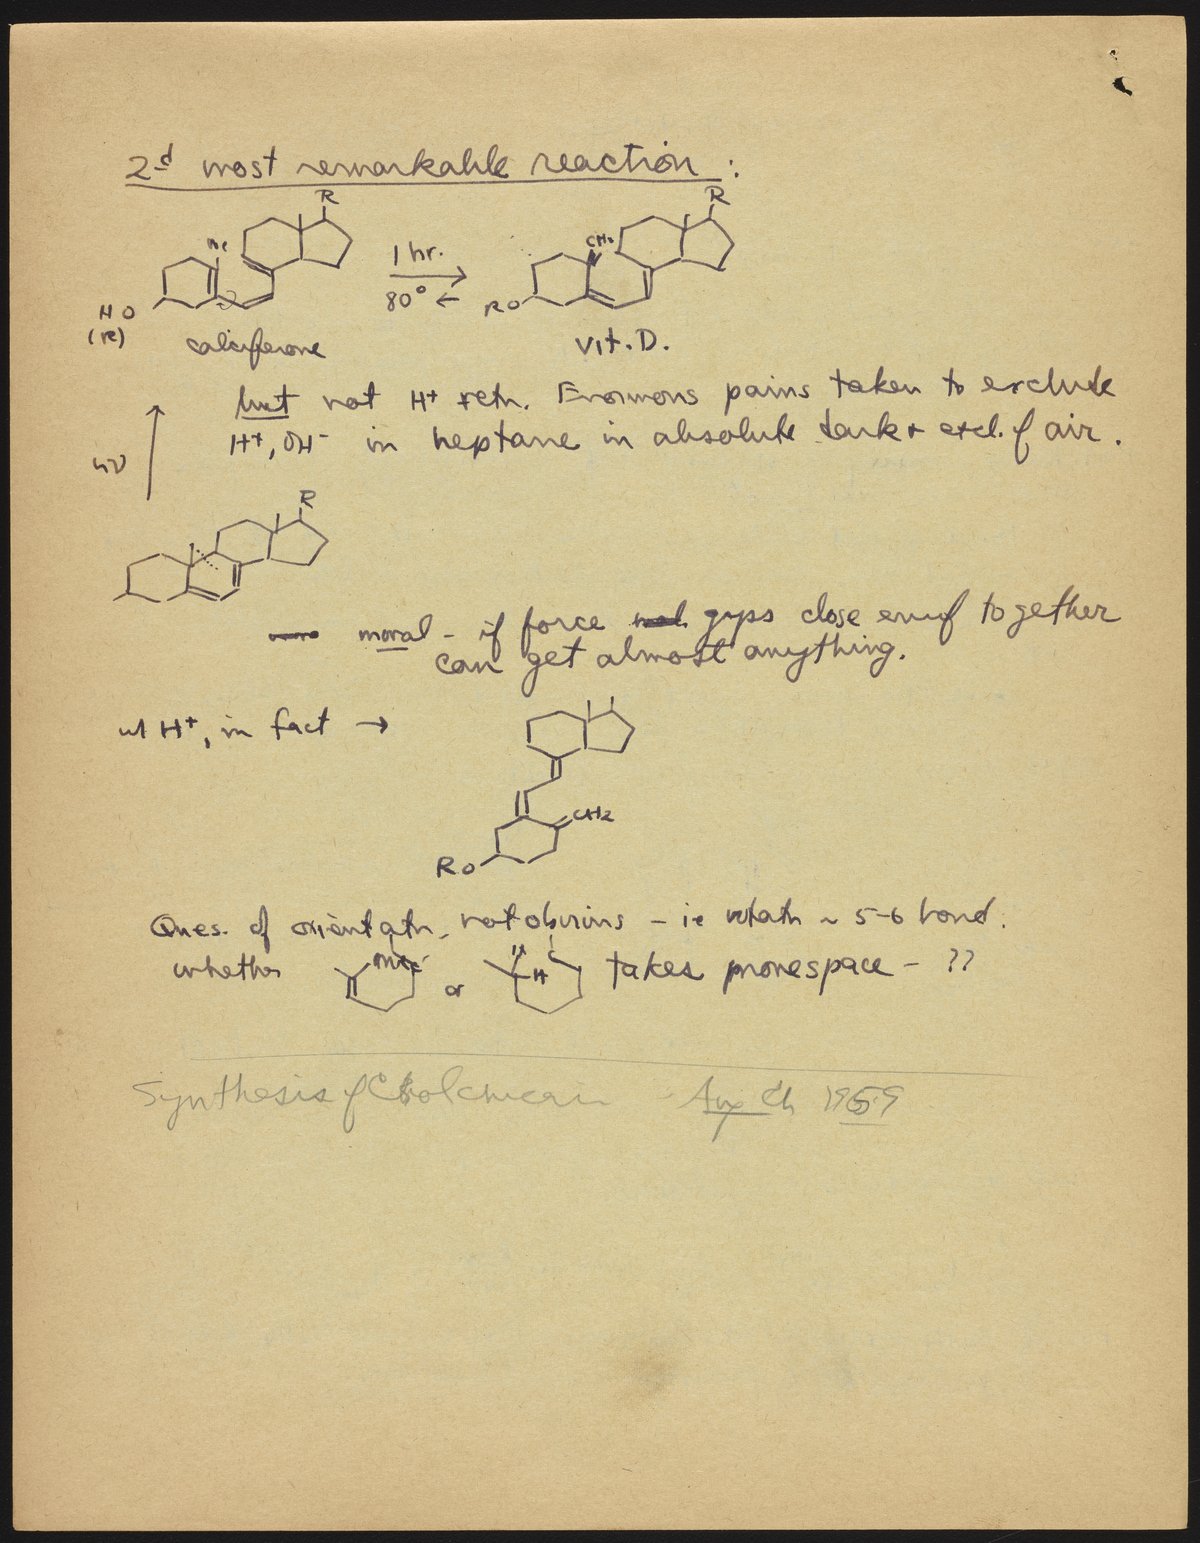 2d most remarkable reaction :
R
R
Me
CH2
1 hr.
80°
HO
(R)
RO
calciferone
vit. D.
but not H+ rctn. Enormous pains taken to exclude
H+, OH- in heptane in absolute dark + excl. of air.
hν
R
moral - if force gyps close enuf together
can get almost anything.
w/ H+, in fact →
CH2
RO
Ques. of orientatn. not obvious - ie rotatn ~ 5-6 bond.
whether
or
H
takes more space - ??
Synthesis of 
Ang Ch 1959